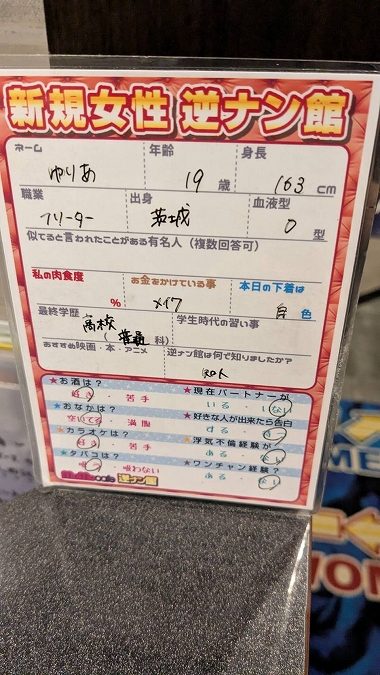 新規女性 逆ナン館
ネーム 年齢 身長
ゆりあ 19歳 163cm
職業 出身 血液型
フリーター 茨城 O型
似てると言われたことがある有名人(複数回答可)
私の肉食度 お金をかけている事 本日の下着は
% メイク 白色
最終学歴 学生時代の習い事
高校(普通科)
おすすめ映画・本・アニメ 逆ナン館は何で知りましたか?
知人
★お酒は? ★現在パートナーが
好き・苦手 いる・いない
★おなかは? ★好きな人が出来たら告白
空いてる・満腹 する・
★カラオケは? ★浮気不倫経験が
好き・苦手 ある・ない
★タバコは? ★ワンチャン経験?
吸う・吸わない ある・ない
cafe 逆ナン館
ME
WOM